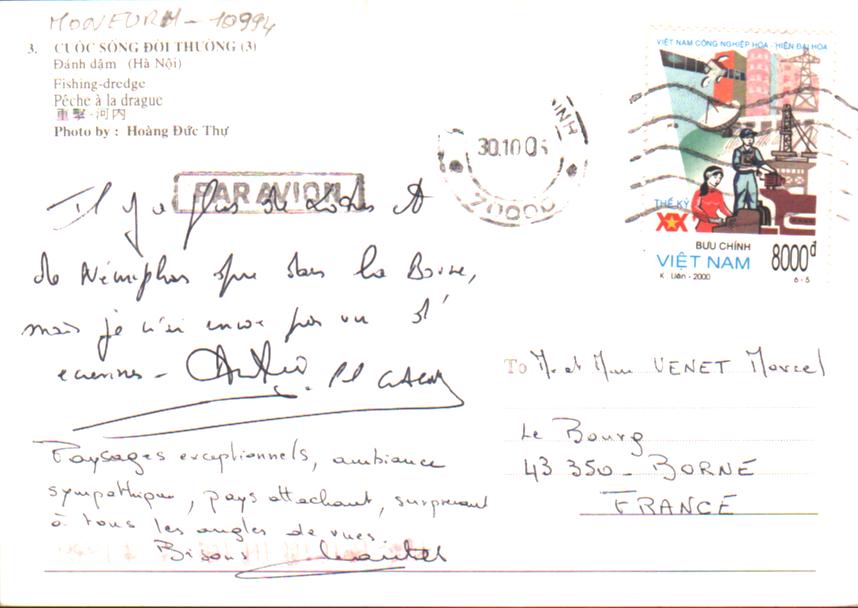 MONEURM - 10994
3. CUỘC SỐNG ĐỜI THƯỜNG (3)
Đánh dậm (Hà Nội)
Fishing-dredge
Pêche à la drague
河内
Photo by : Hoàng Đức Thự
PAR AVION
30.10.0
INH
70000
VIỆT NAM CÔNG NGHIỆP HÓA - HIỆN ĐẠI HÓA
THẾ KỶ
XX
BƯU CHÍNH
VIỆT NAM 8000đ
K. Liên - 2000 6-5
Il y a plus de Lotus et
de Némiphas que dans la Borne,
mais je n'ai encore pas vu d'
écrevisses -
Paysages exceptionnels, ambiance
sympathique, pays attachant, surprenant
à tous les angles de vues.
Bisous
To Mr et Mme VENET Marcel
Le Bourg
43 350 - BORNE
FRANCE